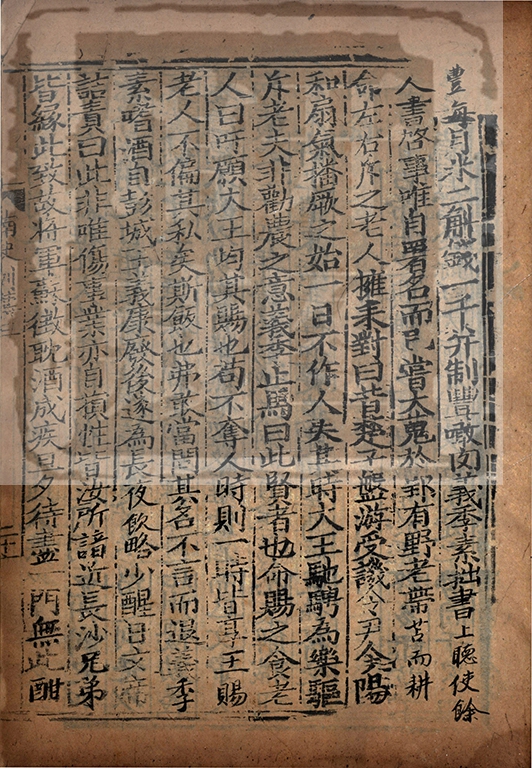 豐每月米二斛錢一千并制豐噉肉義季素拙書上聽使餘
人書啓事唯自署名而已嘗大蒐於郢有野老帶苫而耕
命左右斥之老人擁耒對曰昔楚子盤游受譏令尹今陽
和扇氣播厥之始一日不作人失其時大王馳騁為樂驅
斥老夫非勸農之意義季止馬曰此賢者也命賜之食老
人曰吁願大王均其賜也苟不奪人時則一時皆享王賜
老人不偏其私矣斯飯也弗敢當問其名不言而退義季
素嗜酒自彭城王義康廢後遂為長夜飲略少醒日文帝
詰責曰此非唯傷事業亦自損性皆汝所諳近長沙兄弟
皆緣此致故將軍蘇徽耽酒成疾旦夕待盡一門無此酣